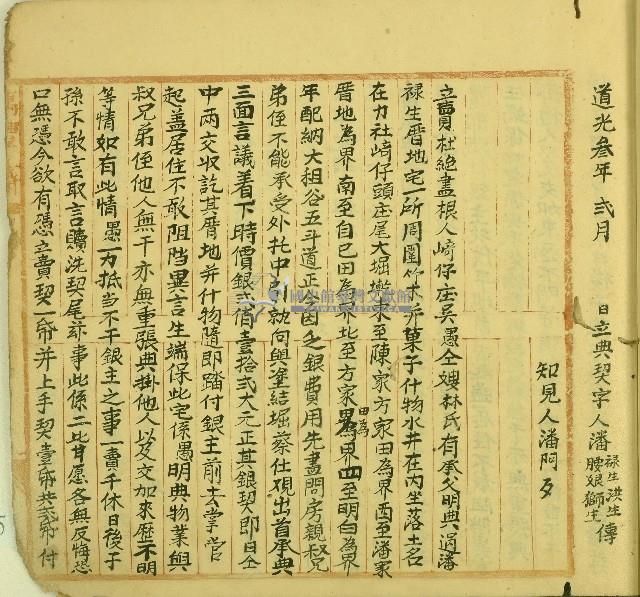 道光叁年 弍月 日立典契字人潘祿生 洪生 腰娘 獅生 傳
知見人潘阿歹
立賣杜絕盡根人崎仔庄吳愚仝嫂林氏有承父明典過潘
祿生厝地宅一所周圍竹木菓子什物水井在內坐落土名
在力社崎仔頭庄尾大堀墘東至陳家方家田為界西至潘家
厝地為界南至自己田為界北至方家田為界四至明白為界
年配納大租谷五斗道正今因乏銀費用先盡問房親叔兄
弟侄不能承受外托中引就向與塗結堀蔡仕硯出首承典
三面言議着下時價銀三佰壹拾弍大元正其銀契即日仝
中兩交收訖其厝地并什物隨即踏付銀主前去掌管
起盖居住不敢阻擋異言生端保此宅係愚明典物業與
叔兄弟侄他人無干亦無重張典掛他人以及交加來歷不明
等情如有此情愚一力抵当不干銀主之事一賣千休日後子
孫不敢言取言贖洗契尾茲事此係二比甘愿各無反悔恐
口無憑今欲有憑立賣契一帋并上手契壹帋共弍帋付
國史館臺灣文獻館